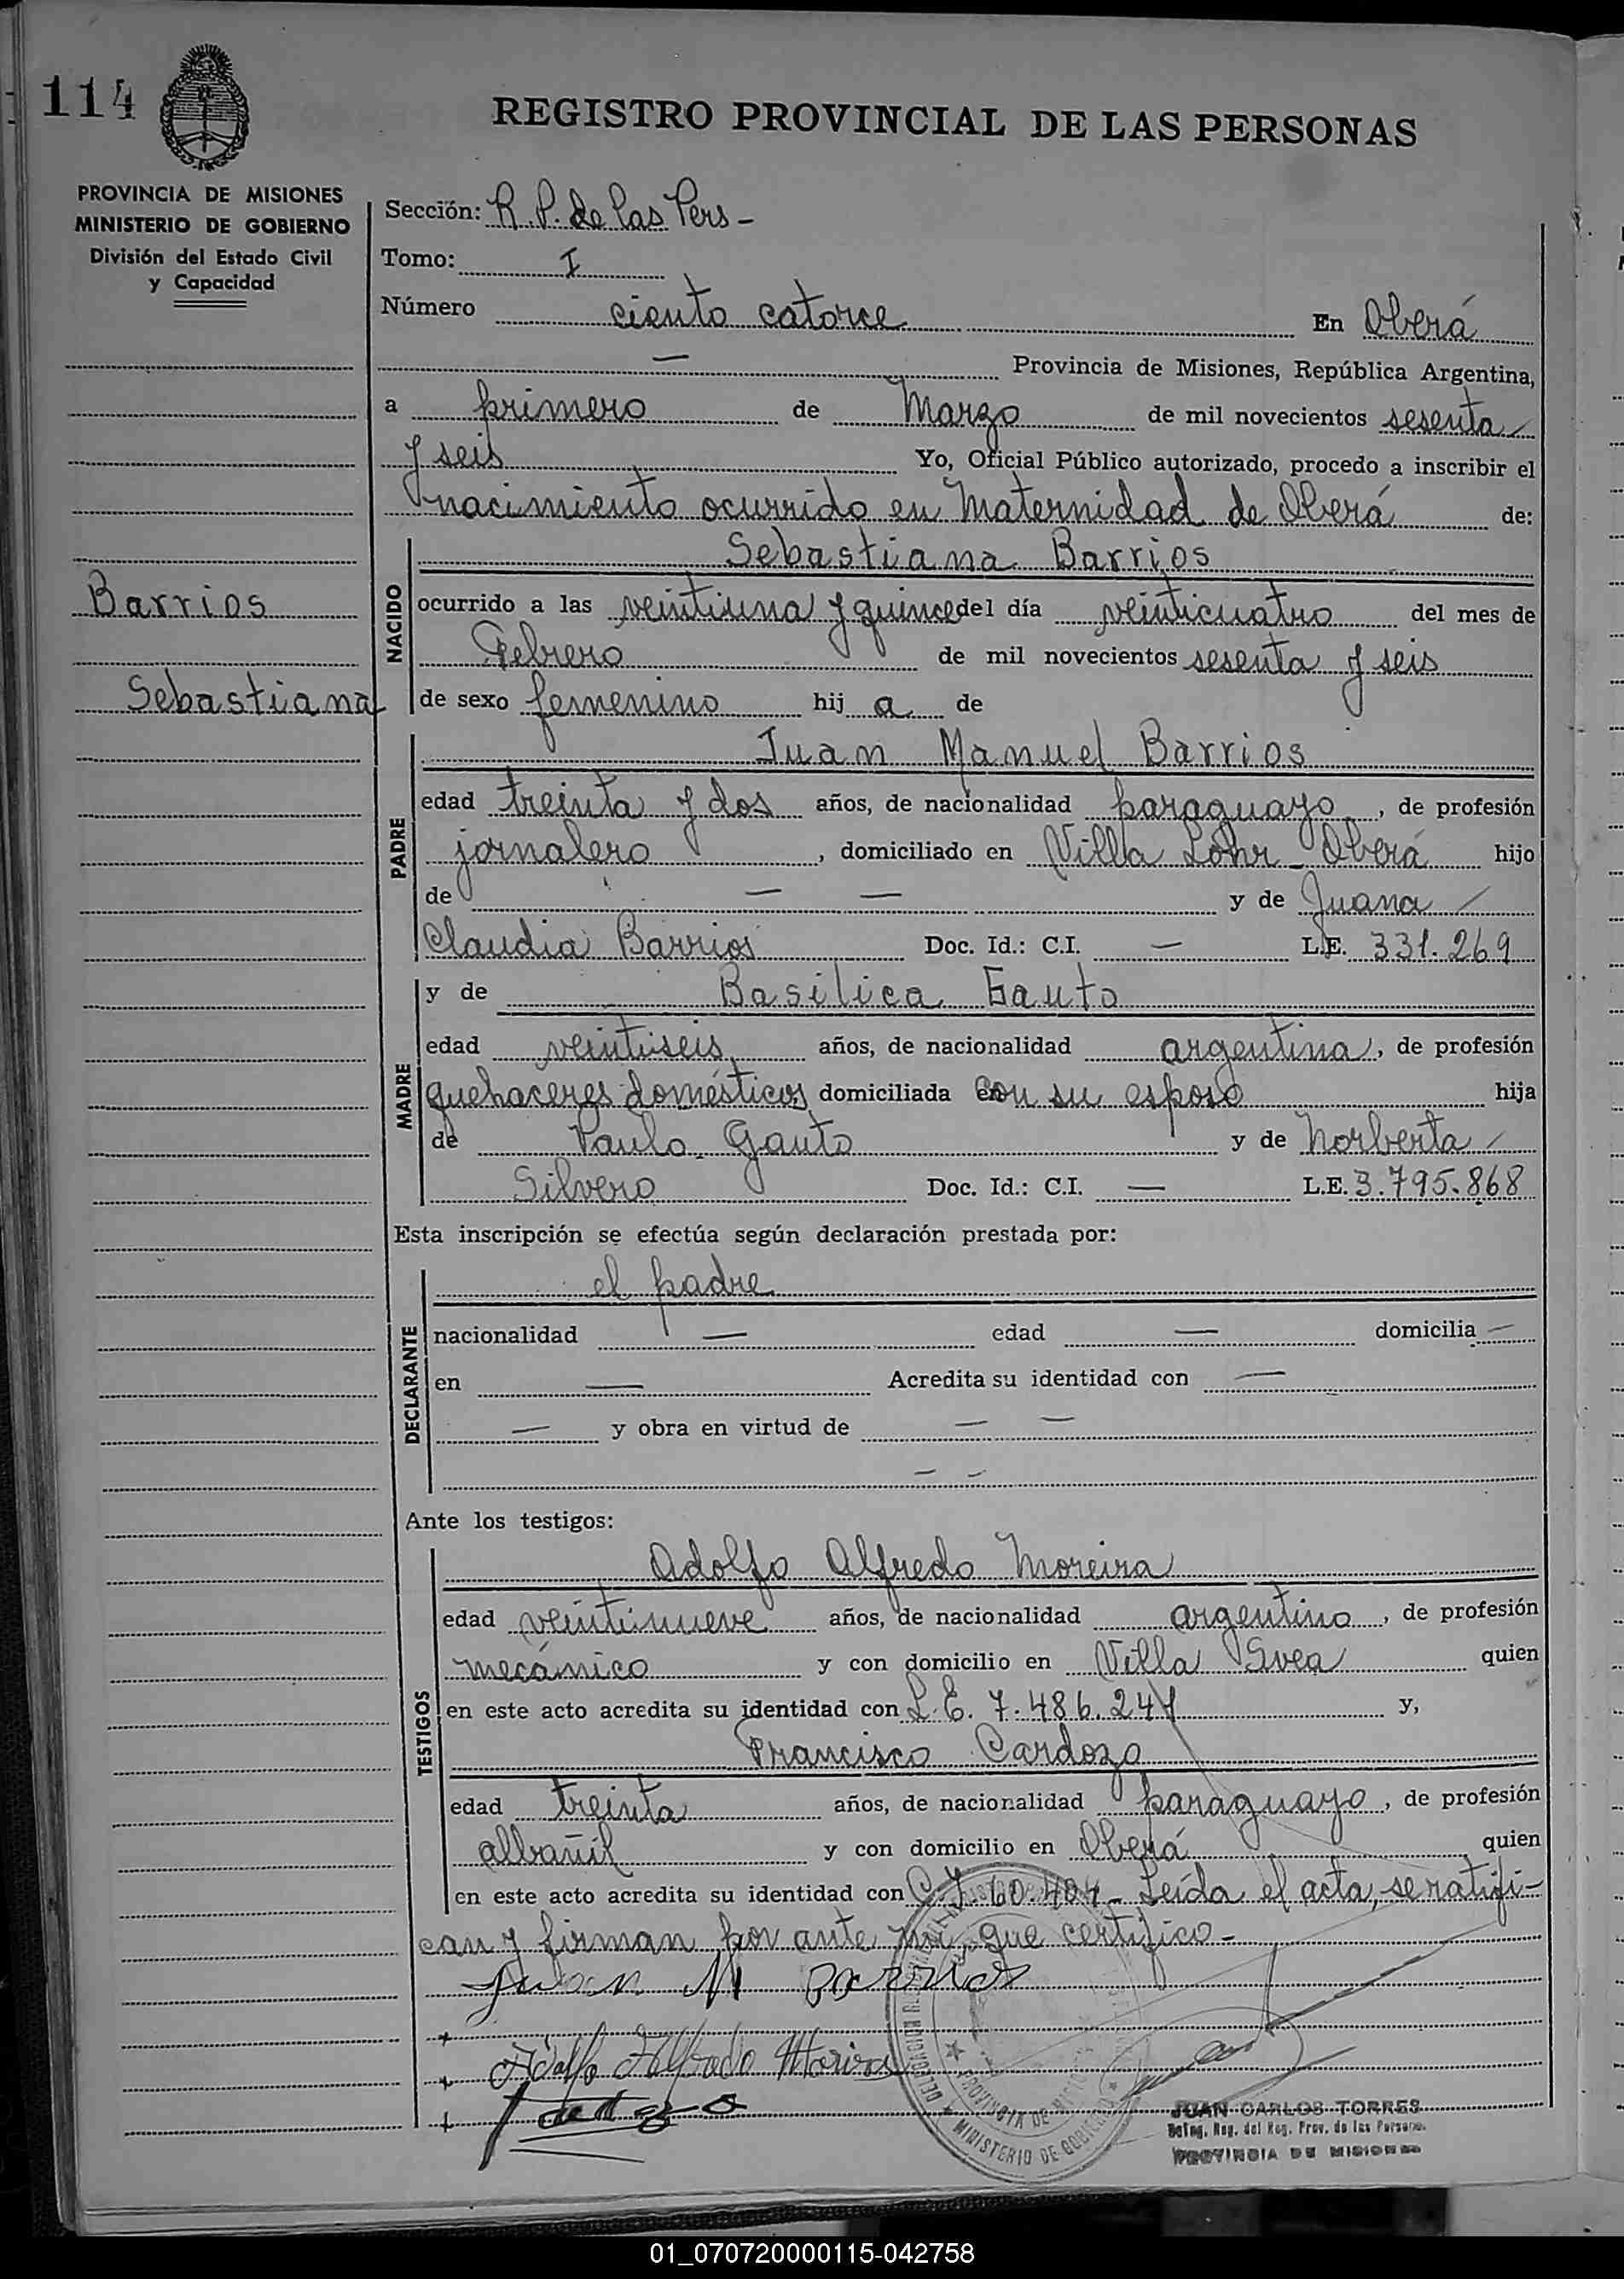 114
REGISTRO PROVINCIAL DE LAS PERSONAS
PROVINCIA DE MISIONES
MINISTERIO DE GOBIERNO
División del Estado Civil
y Capacidad
Sección: R. P. de las Pers -
Tomo: I
Número ciento catorce En Oberá
— Provincia de Misiones, República Argentina,
a primero de Marzo de mil novecientos sesenta
y seis Yo, Oficial Público autorizado, procedo a inscribir el
nacimiento ocurrido en Maternidad de Oberá de:
Barrios
Sebastiana
NACIDO
Sebastiana Barrios
ocurrido a las veintiuna y quince del día veinticuatro del mes de
Febrero de mil novecientos sesenta y seis
de sexo femenino hij a de
PADRE
Juan Manuel Barrios
edad treinta y dos años, de nacionalidad paraguayo, de profesión
jornalero, domiciliado en Villa Löhr - Oberá hijo
de — — y de Juana
Claudia Barrios Doc. Id.: C.I. — L.E. 331.269
MADRE
y de Basilica Gauto
edad veintiseis años, de nacionalidad argentina, de profesión
quehaceres domésticos domiciliada con su esposo hija
de Paulo Gauto y de Norberta
Silvero Doc. Id.: C.I. — L.E. 3.795.868
Esta inscripción se efectúa según declaración prestada por:
DECLARANTE
el padre
nacionalidad — edad — domicilia —
en — Acredita su identidad con —
— y obra en virtud de — —
— —
Ante los testigos:
TESTIGOS
Adolfo Alfredo Moreira
edad veintinueve años, de nacionalidad argentino, de profesión
mecánico y con domicilio en Villa Svea quien
en este acto acredita su identidad con L.E. 7.486.247 y,
Francisco Cardozo
edad treinta años, de nacionalidad paraguayo, de profesión
albañil y con domicilio en Oberá quien
en este acto acredita su identidad con C.I. 60.404 - Leída el acta, se ratifi-
can y firman por ante mí, que certifico -
Juan M Barrios
Adolfo Alfredo Moreira
PROVINCIA DE MISIONES
MINISTERIO DE GOBIERNO
JUAN CARLOS TORRES
Deleg. Reg. del Reg. Prov. de las Personas
PROVINCIA DE MISIONES
01_070720000115-042758